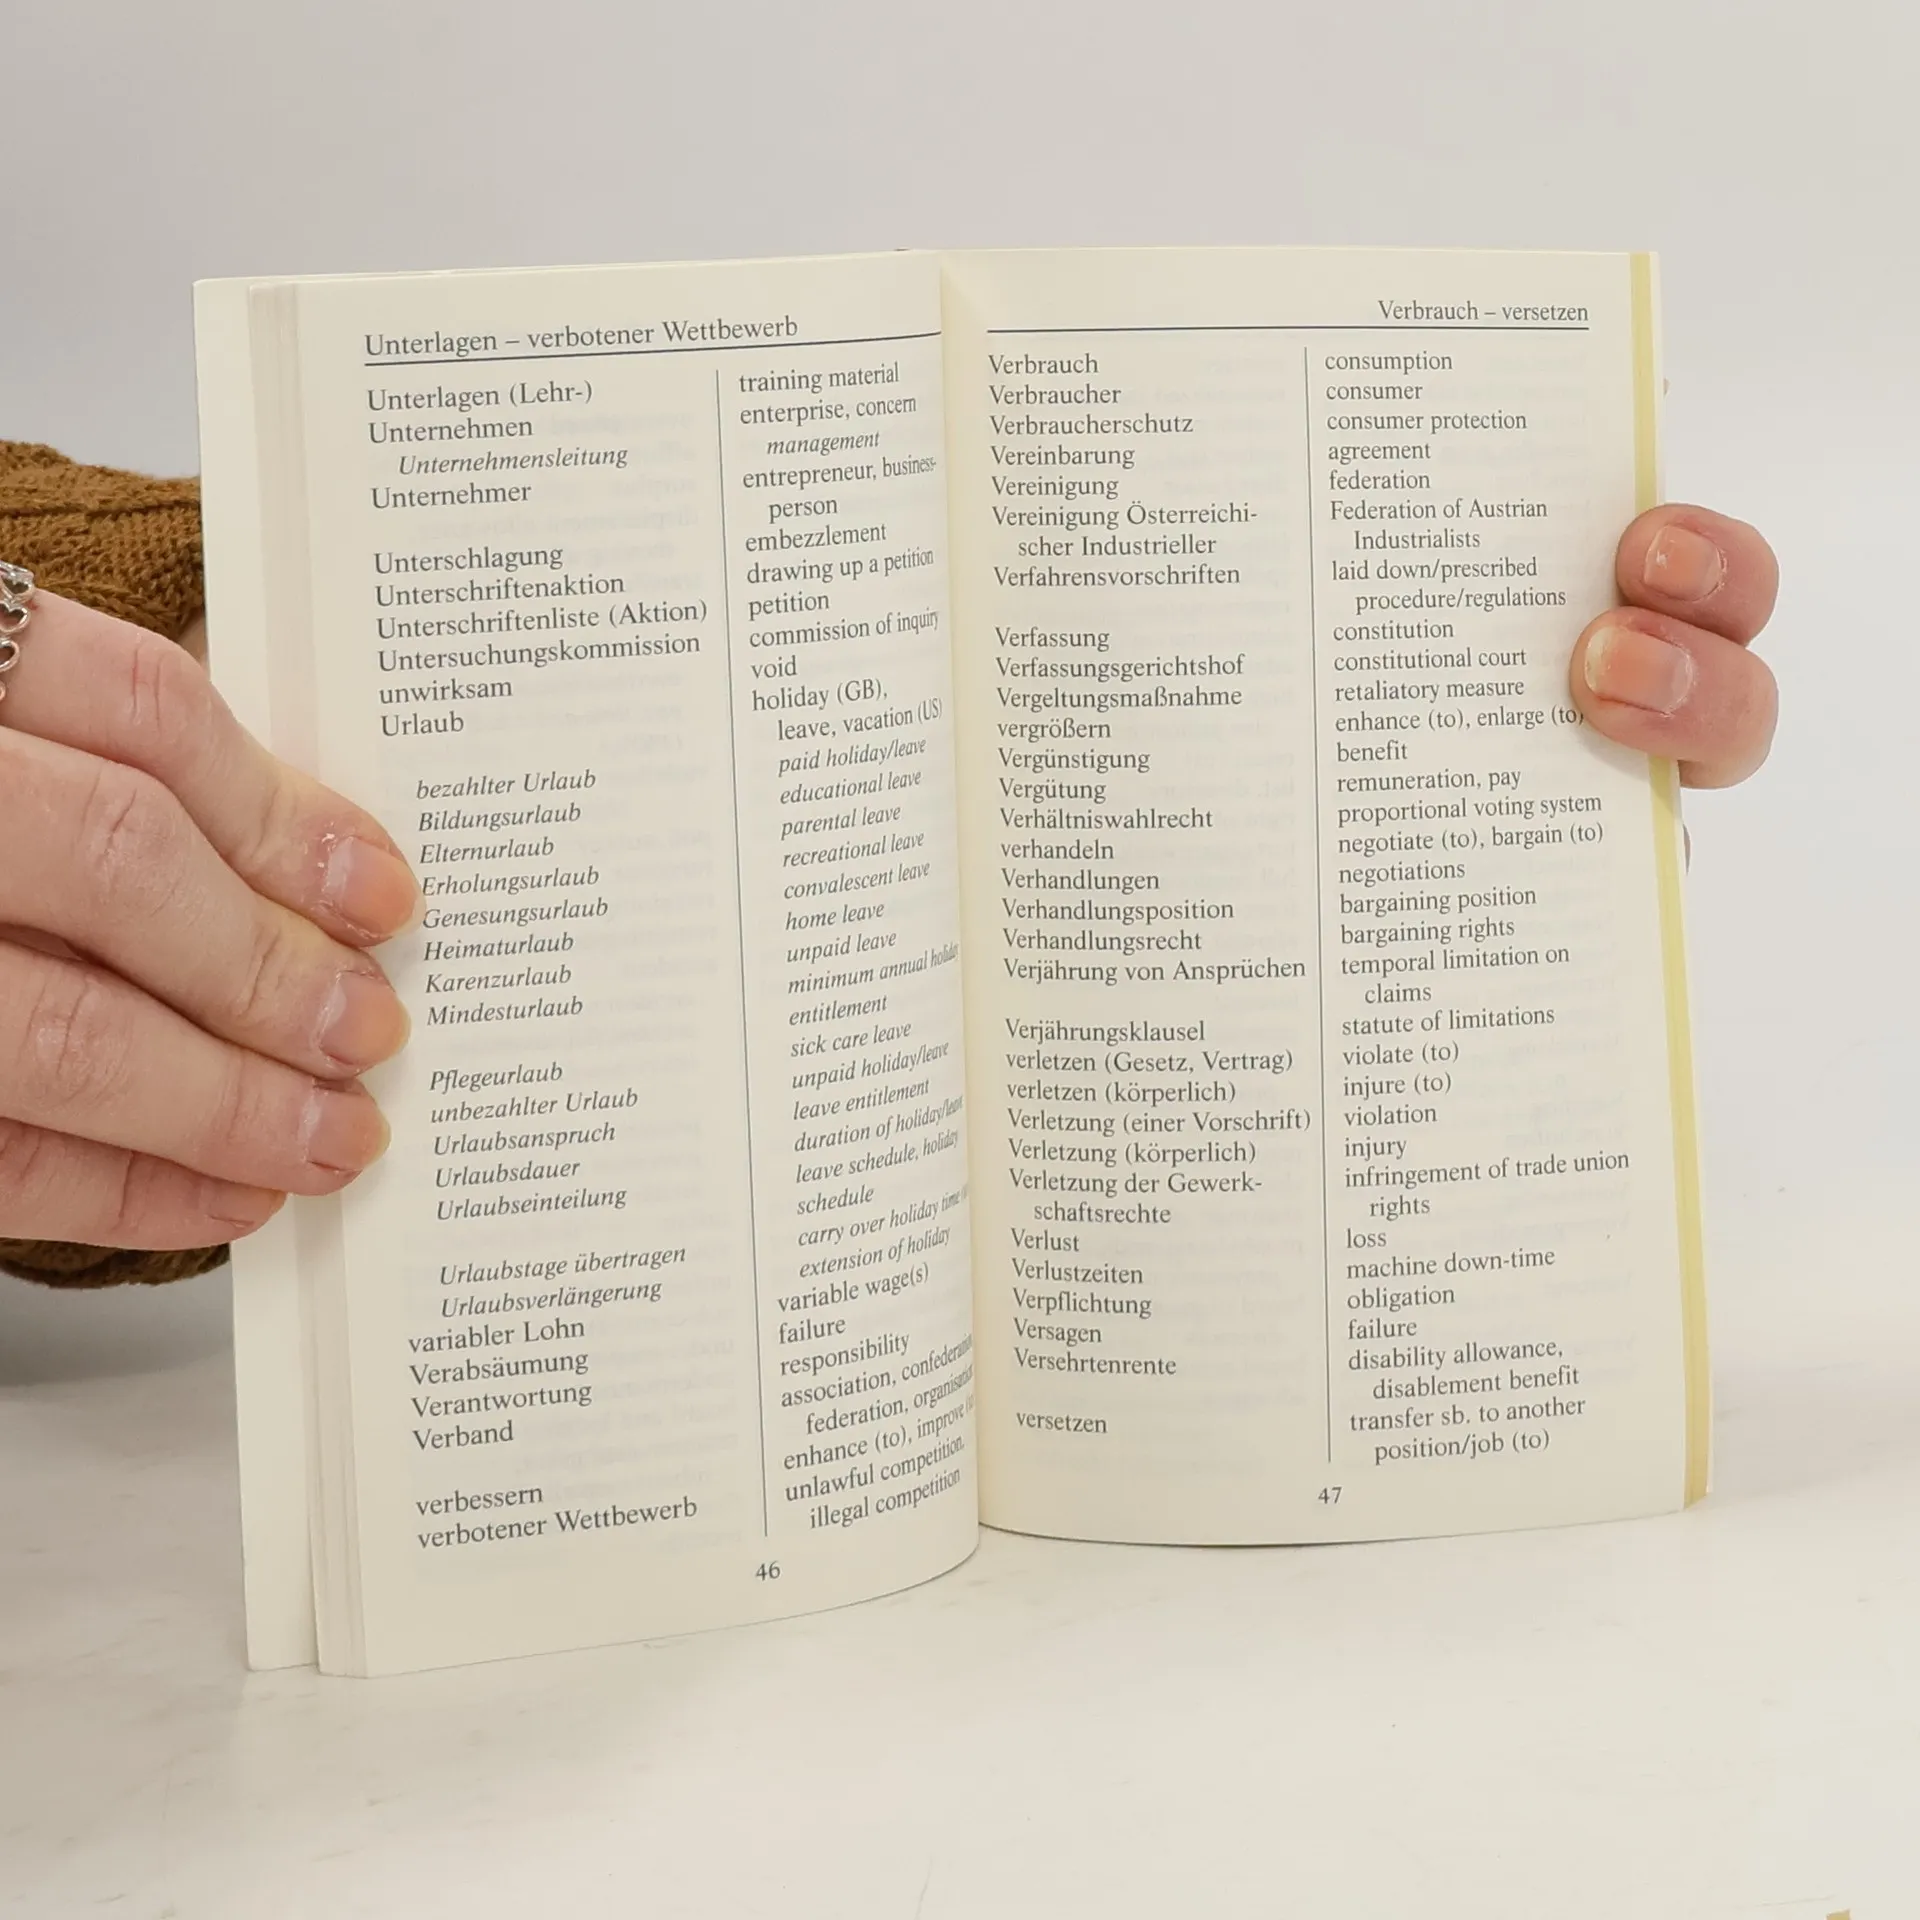 Unterlagen – verbotener Wettbewerb
Unterlagen (Lehr-)
Unternehmen
Unternehmensleitung
Unternehmer
Unterschlagung
Unterschriftenaktion
Unterschriftenliste (Aktion)
Untersuchungskommission
unwirksam
Urlaub
bezahlter Urlaub
Bildungsurlaub
Elternurlaub
Erholungsurlaub
Genesungsurlaub
Heimaturlaub
Karenzurlaub
Mindesturlaub
Pflegeurlaub
unbezahlter Urlaub
Urlaubsanspruch
Urlaubsdauer
Urlaubseinteilung
Urlaubstage übertragen
Urlaubsverlängerung
variabler Lohn
Verabsäumung
Verantwortung
Verband
verbessern
verbotener Wettbewerb
training material
enterprise, concern
management
entrepreneur, business-
person
embezzlement
drawing up a petition
petition
commission of inquiry
void
holiday (GB),
leave, vacation (US)
paid holiday/leave
educational leave
parental leave
recreational leave
convalescent leave
home leave
unpaid leave
minimum annual holiday
entitlement
sick care leave
unpaid holiday/leave
leave entitlement
duration of holiday/leave
leave schedule, holiday
schedule
carry over holiday time
extension of holiday
variable wage(s)
failure
responsibility
association, confederation
federation, organisation
enhance (to), improve
unlawful competition,
illegal competition
46
Verbrauch – versetzen
Verbrauch
Verbraucher
Verbraucherschutz
Vereinbarung
Vereinigung
Vereinigung Österreichi-
scher Industrieller
Verfahrensvorschriften
Verfassung
Verfassungsgerichtshof
Vergeltungsmaßnahme
vergrößern
Vergünstigung
Vergütung
Verhältniswahlrecht
verhandeln
Verhandlungen
Verhandlungsposition
Verhandlungsrecht
Verjährung von Ansprüchen
Verjährungsklausel
verletzen (Gesetz, Vertrag)
verletzen (körperlich)
Verletzung (einer Vorschrift)
Verletzung (körperlich)
Verletzung der Gewerk-
schaftsrechte
Verlust
Verlustzeiten
Verpflichtung
Versagen
Versehrtenrente
versetzen
consumption
consumer
consumer protection
agreement
federation
Federation of Austrian
Industrialists
laid down/prescribed
procedure/regulations
constitution
constitutional court
retaliatory measure
enhance (to), enlarge (to)
benefit
remuneration, pay
proportional voting system
negotiate (to), bargain (to)
negotiations
bargaining position
bargaining rights
temporal limitation on
claims
statute of limitations
violate (to)
injure (to)
violation
injury
infringement of trade union
rights
loss
machine down-time
obligation
failure
disability allowance,
disablement benefit
transfer sb. to another
position/job (to)
47